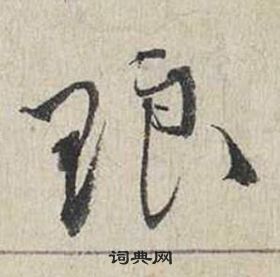 琅
词典网